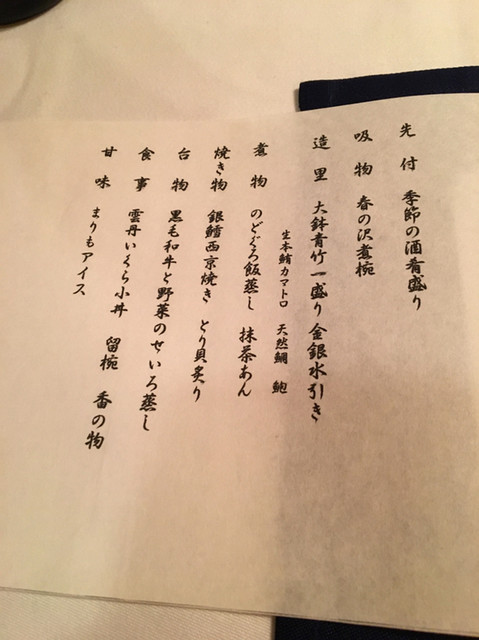 先付 季節の酒肴盛り
吸物 春の沢煮椀
造里 大鉢青竹一盛り 金銀水引き
生本鮪カマトロ 天然鯛 鮑
煮物 のどぐろ飯蒸し 抹茶あん
焼き物 銀鱈西京焼き とり貝炙り
台物 黒毛和牛と野菜のせいろ蒸し
食事 雲丹いくら小丼 留椀 香の物
甘味 まりもアイス